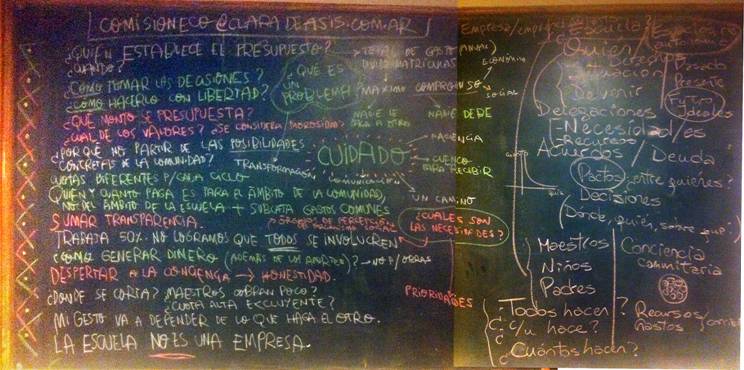 COMISIONECO@CLARADEASIS.COM.AR
¿QUIEN ESTABLECE EL PRESUPUESTO?
¿CUANDO?
¿COMO TOMAR LAS DECISIONES?
¿COMO HACERLO CON LIBERTAD?
¿QUE MONTO SE PRESUPUESTA?
¿CUAL DE LOS VALORES? ¿SE CONSIDERA MOROSIDAD?
¿POR QUE NO PARTIR DE LAS POSIBILIDADES
CONCRETAS DE LA COMUNIDAD?
CUOTAS DIFERENTES P/CADA CICLO
QUIEN Y CUANTO PAGA ES PARA EL ÁMBITO DE LA COMUNIDAD,
NO DEL ÁMBITO DE LA ESCUELA + SUBCATA GASTOS COMUNES
SUMAR TRANSPARENCIA.
TRABATA 50% NO LOGRAMOS QUE TODOS SE INVOLUCREN
¿COMO GENERAR DINERO (ADEMAS DE LOS ARANCELES)? → NO P/OBRAS
DESPERTAR A LA CONCIENCIA → HONESTIDAD.
¿DONDE SE CORTA? ¿MAESTROS COBRAN POCO?
¿CUOTA ALTA EXCLUYENTE?
MI GESTO VA A DEPENDER DE LO QUE HAGA EL OTRO.
LA ESCUELA NO ES UNA EMPRESA.
¿QUÉ ES
UN
PROBLEMA?
TOTAL DE GASTO (ANUAL)
DIVIDO MATRICULAS
MAXIMO COMPROMISO
ECONÓMICO
SOCIAL
NADIE LE
PAGA AL OTRO
NADIE DEBE
CUIDADO
PACIENCIA
CUENCO
PARA RECIBIR
TRANSFORMACIÓN
COMUNICACIÓN
UN CAMINO
¿CUALES SON
LAS NECESIDADES?
PRIORIDADES
Empresa/
Escuela?
Quien
Situación
Devenir
Pasado
Presente
Futuro
ideales
Delegaciones
Necesidades
Recursos
Acuerdos / Deuda
Pactos ¿entre quiénes?
Decisiones
(Dónde, quién, sobre qué?)
Maestros
Niños
Padres
Conciencia
comunitaria
¿Todos hacen?
¿c/u hace?
¿Cuántos hacen?
Recursos/
Gastos